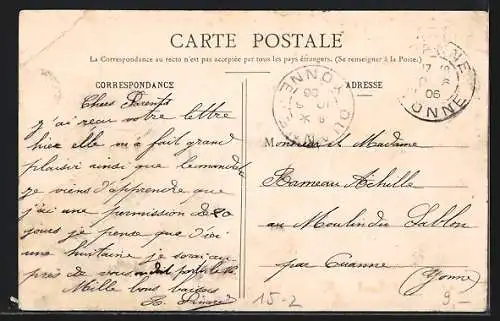 CARTE POSTALE
La Correspondance au recto n'est pas acceptée par tous les pays étrangers. (Se renseigner à la Poste.)
CORRESPONDANCE
ADRESSE
Chers Parents
j'ai reçu votre lettre
hier elle m'a fait grand
plaisir ainsi que le mandat
je viens d'apprendre que
j'ai une permission de 20
jours je pense que d'ici
une huitaine je serai au
près de vous
Mille bons baisers
Monsieur et Madame
Rameau Achille
au Moulin du Sablon
par Cuanne
(Yonne)
YONNE
06
YONNE
15-2
9,-